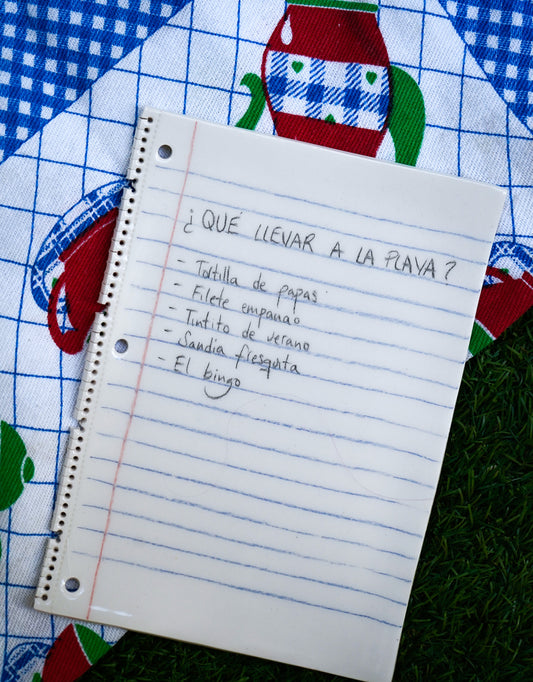 ¿QUÉ LLEVAR A LA PLAYA?
- Tortilla de papas
- Filete empanao
- Tintito de verano
- Sandía fresquita
- El bingo